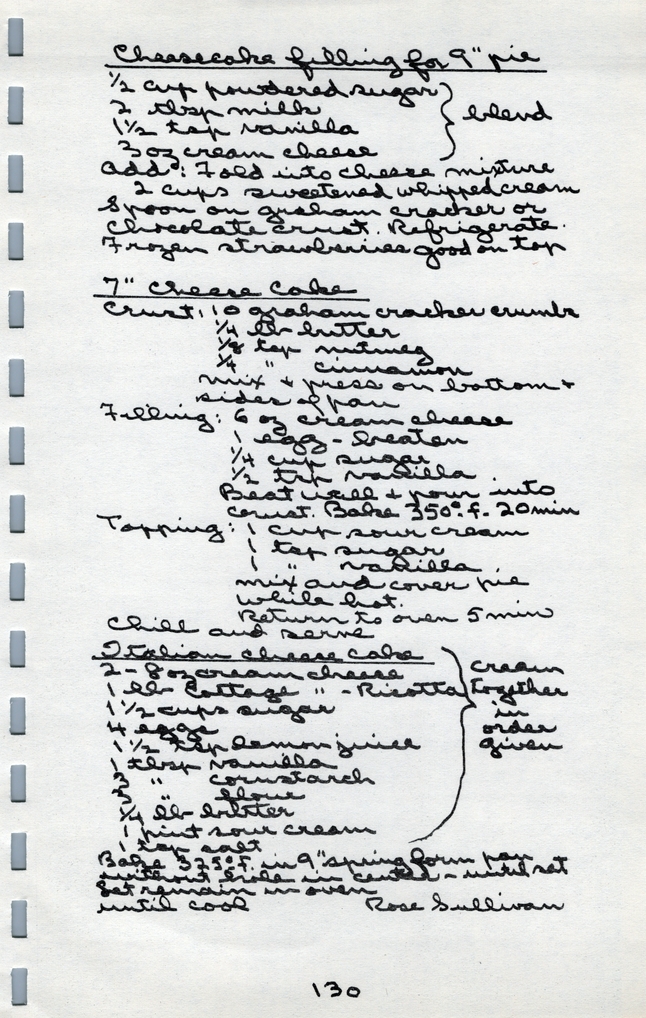 Cheesecake filling for 9" pie
1/2 cup powdered sugar
2 tbsp milk
1 1/2 tsp vanilla
3 oz cream cheese
} blend
add: Fold into cheese mixture
2 cups sweetened whipped cream
Spoon on graham cracker or
chocolate crust. Refrigerate.
Frozen strawberries good on top
7" Cheese Cake
Crust: 10 graham cracker crumbs
1/4 lb butter
1/8 tsp nutmeg
1/4 " cinnamon
mix + press on bottom +
sides of pan
Filling: 6 oz cream cheese
1 egg - beaten
1/4 cup sugar
1/2 tsp vanilla
Beat well + pour into
crust. Bake 350° f. 20 min
Topping: 1 cup sour cream
1 tsp sugar
1 " vanilla
mix and cover pie
while hot.
Return to oven 5 min
Chill and serve
Italian cheese cake
2 - 8 oz cream cheese
1 lb Cottage " - Ricotta
1 1/2 cups sugar
4 eggs
1 1/2 tsp lemon juice
1 tbsp vanilla
3 " cornstarch
3 " flour
1/4 lb butter
1 pint sour cream
1 tsp salt
} cream
together
in
order
given
Bake 325° f. in 9" spring form pan
without hole in center - until set
Let remain in oven
until cool Rose Sullivan
130